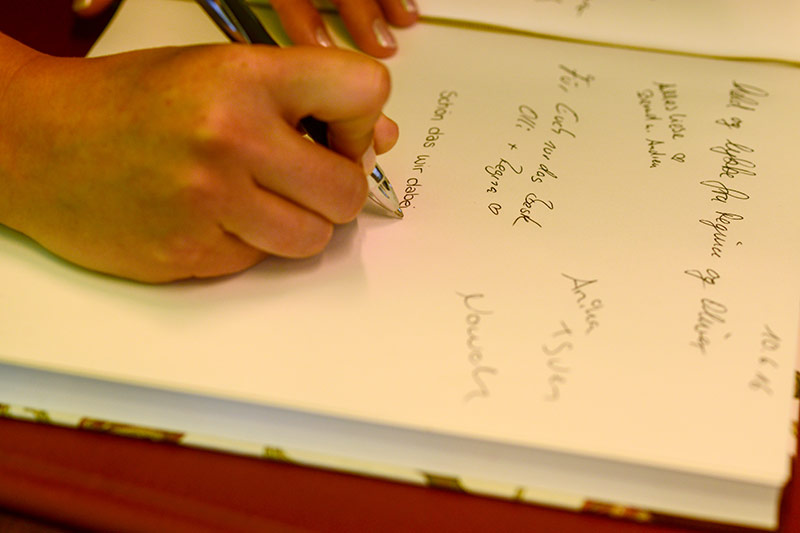 10.6.16
Held og lykke fra Regina og Oliver
Alles Liebe ♡
Bernd u. Andrea
Für Euch nur das Beste
Olli + Regina ♡
Anika
+ Sven
Schön das wir dabei